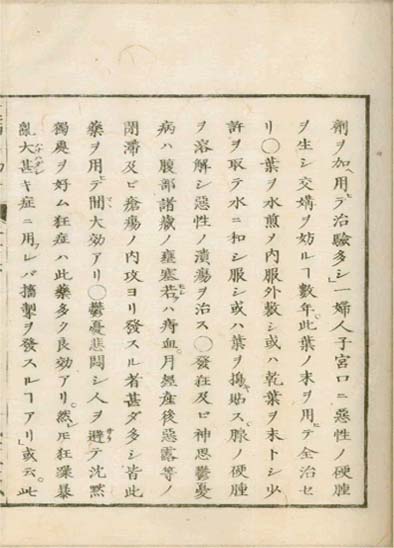 劑ヲ加ヘ用ヒテ治驗多シ」一婦人子宮口ニ惡性ノ硬腫
ヲ生シ交媾ヲ妨ルヿ數年。此葉ノ末ヲ用ヒテ全治セ
リ◯葉ヲ水煎ノ内服外敷シ或ハ乾葉ヲ末トシ少
許ヲ取テ水ニ和シ服シ或ハ葉ヲ搗キ貼ス。腺ノ硬腫
ヲ溶解シ惡性ノ潰瘍ヲ治ス◯發狂及ヒ神思鬱憂
病ハ腹部諸藏ノ壅塞若クハ痔血。月經産後惡露等ノ
閉滯及ヒ瘡瘍ノ内攻ヨリ發スル者甚ダ多シ皆此
藥ヲ用ヒテ間大効アリ◯鬱憂悲悶シ人ヲ避テ沈黙
獨處ヲ好ム狂症ハ此藥多ク良効アリ。然レ𪜈狂躁暴
亂大甚キ症ニ用フレバ搐掣ヲ發スルヿアリ」或云。此